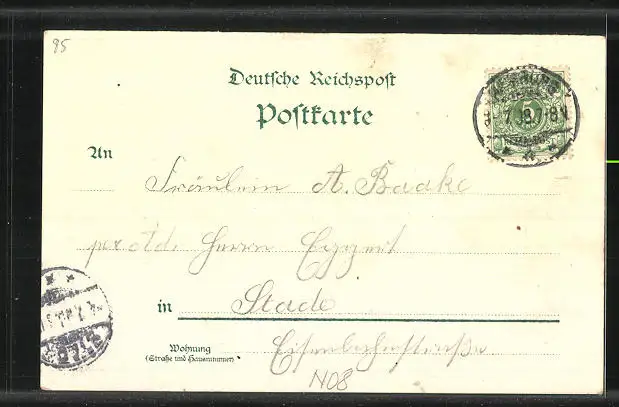 95
Deutsche Reichspost
Postkarte
5
An
Fräulein A. Baake
per Ad. Herrn Eggert
in Stade
Wohnung
(Straße und Hausnummer)
Eisenbahnstraße
N08